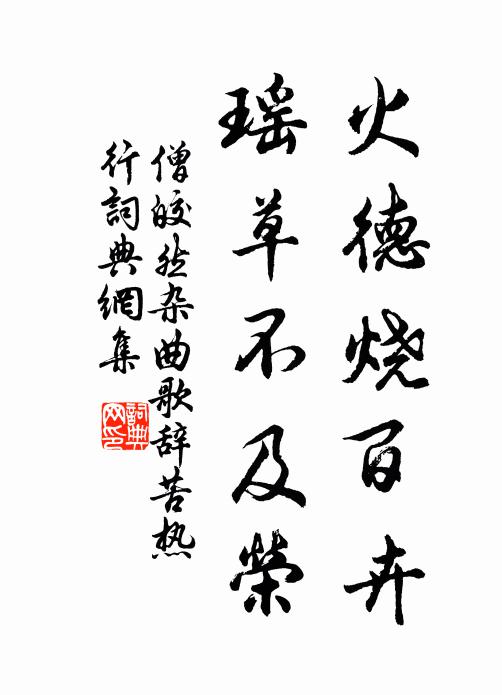 火德烧百卉
瑶草不及榮
僧皎然杂曲歌辞苦热
行詞典網集
詞典网印